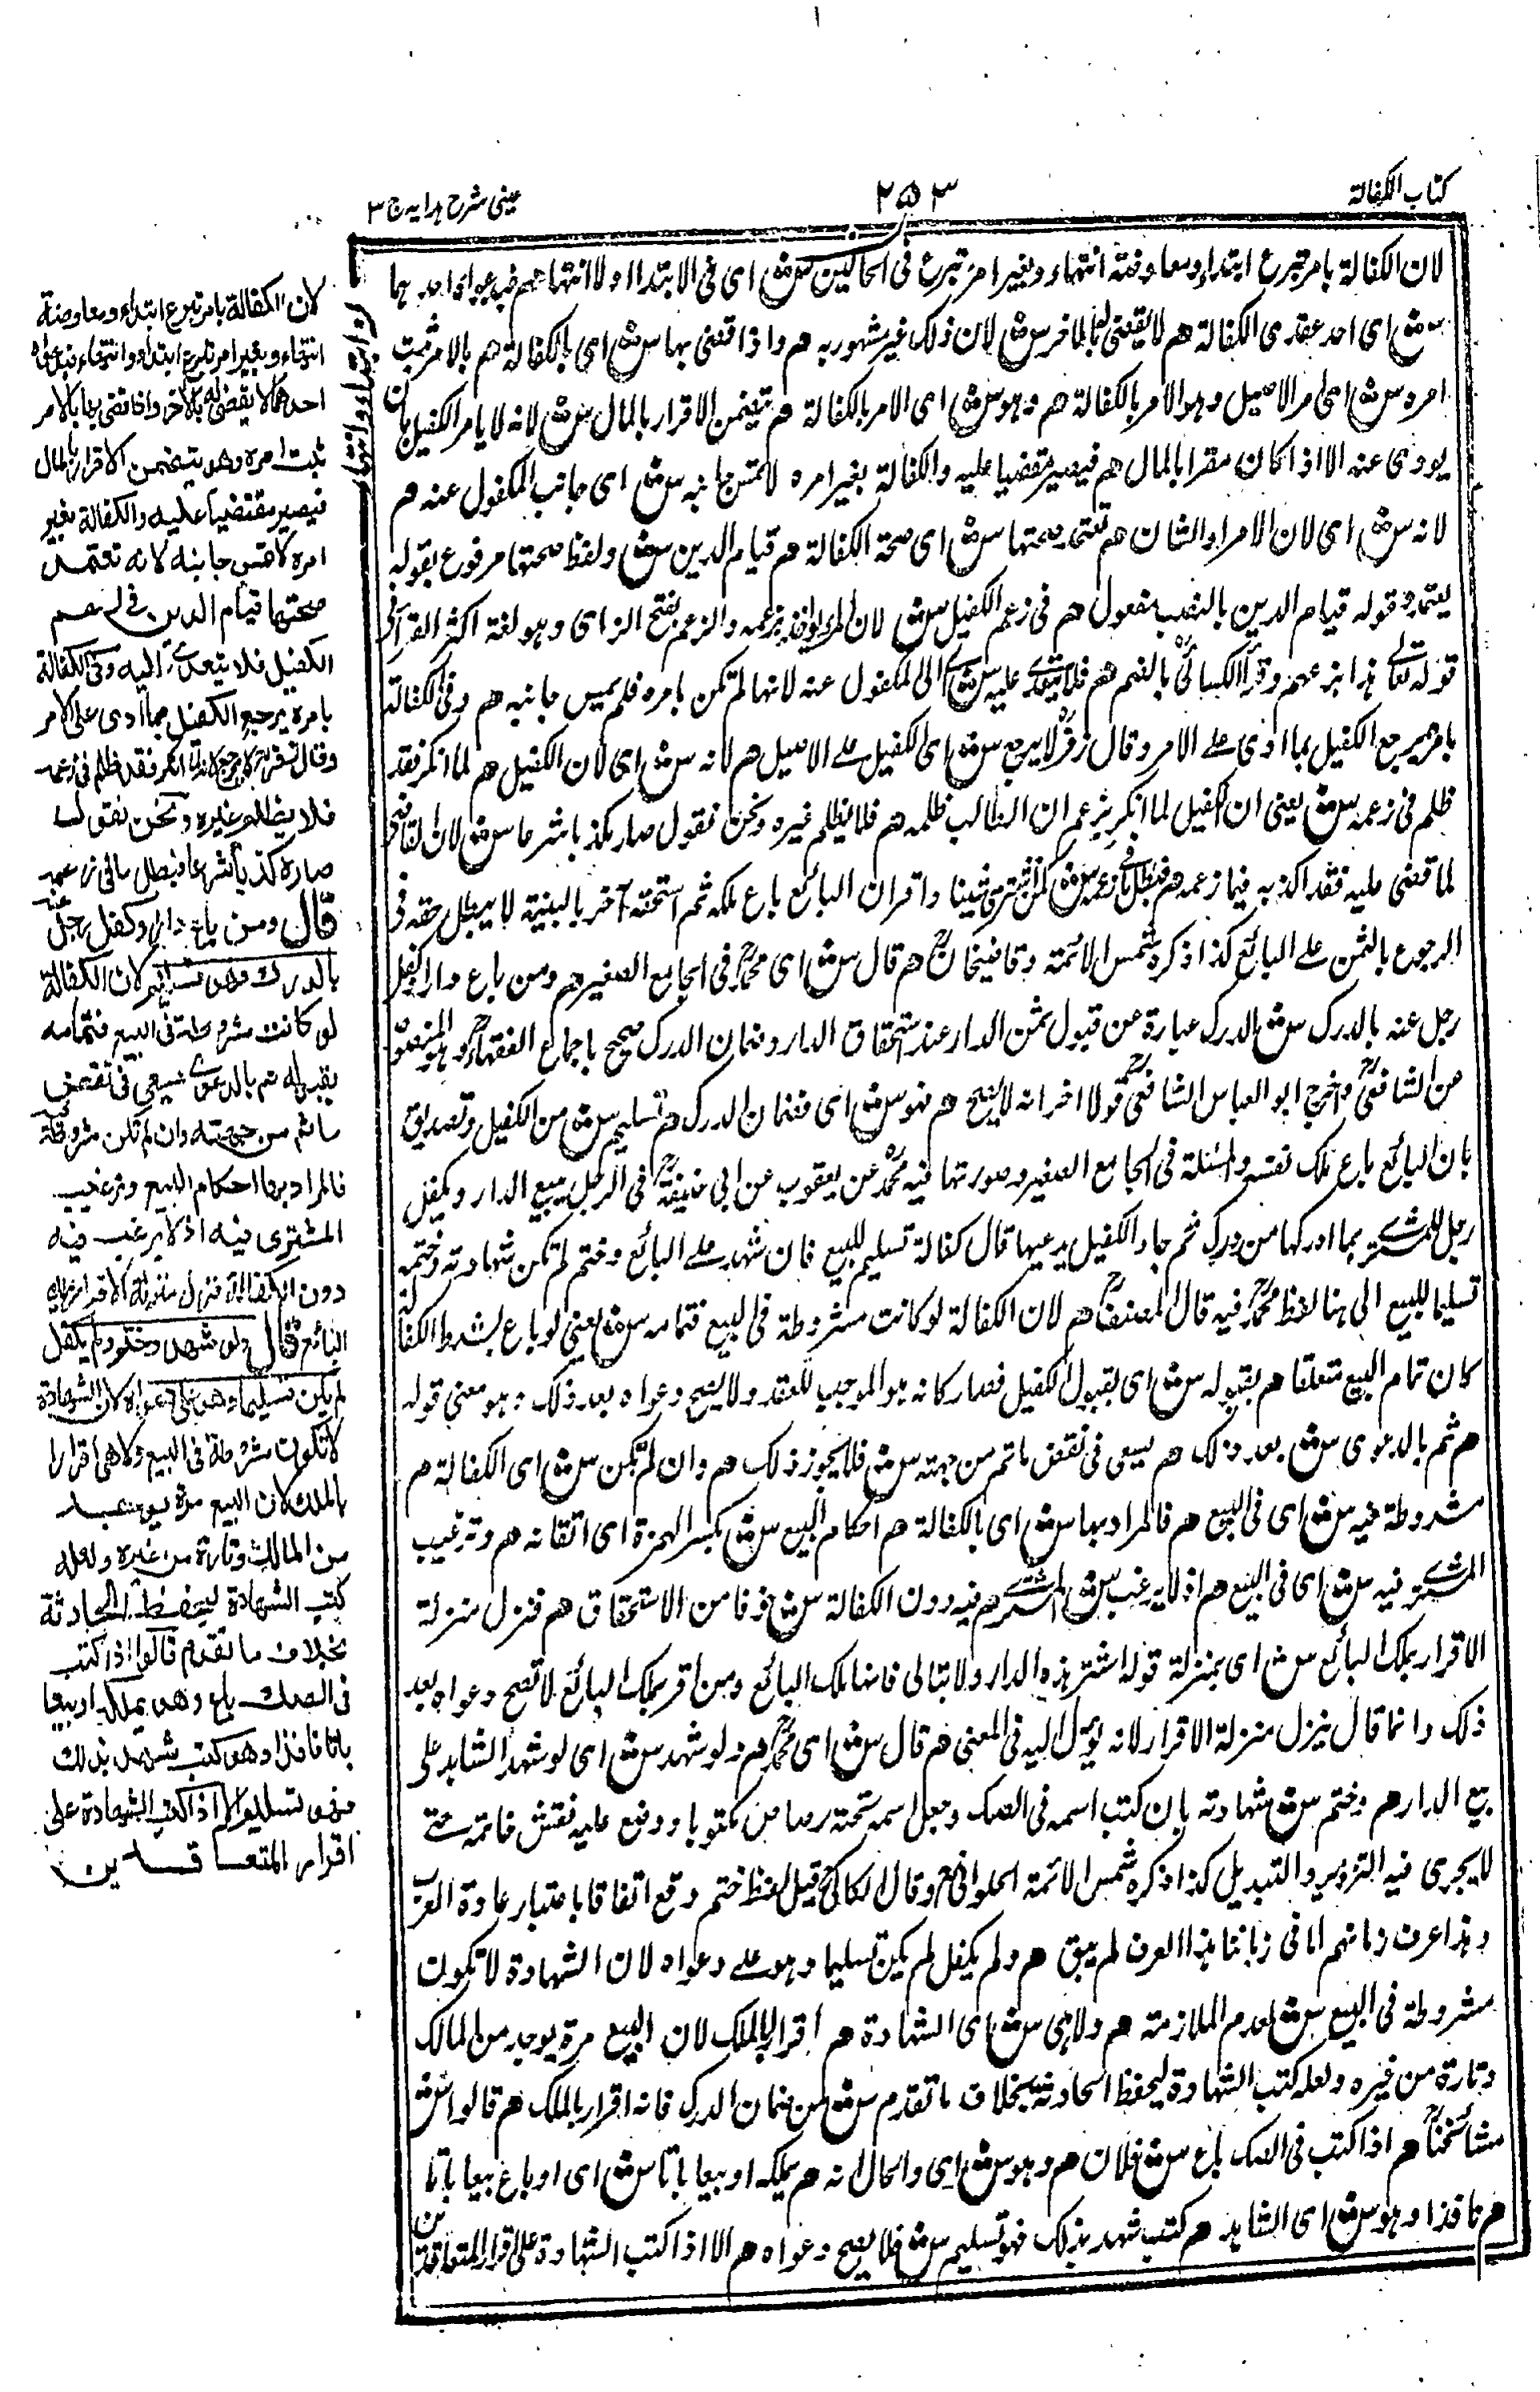 كتاب الكفالة
٢٥٣
عينى شرح هدايه ج ٣
لان الكفالة بامر تبرع ابتداء ومعاوضة انتهاء وبغير امر تبرع فى الحالين ش اى فى الابتداء والانتهاء هم فبدعواه احدهما
ش اى احد عقدى الكفالة هم لا يقضى له بالاخر ش لان ذلك غير مشهود به هم واذا قضى بها ش اى بالكفالة هم بالامر ثبت
امره ش اى امر الاصيل وهو الامر بالكفالة هم وهو ش اى الامر بالكفالة هم يتضمن الاقرار بالمال ش لانه لا يامر الكفيل بان
يودى عنه الا اذا كان مقرا بالمال هم فيصير مقضيا عليه والكفالة بغير امره لا تمس جانبه ش اى جانب المكفول عنه هم
لانه ش اى لان الامر والشان هم تعتمد صحتها ش اى صحة الكفالة هم قيام الدين ش ولفظ صحتها مرفوع بقوله
يعتمد وقوله قيام الدين بالنصب مفعول هم فى زعم الكفيل ش لان المرء يواخذ بزعمه والزعم بفتح الزاى وهو لغة اكثر القرآن فى
قوله تعالى هذا بزعمهم وقرأ الكسائى بالضم هم فلا يتعدى عليه ش اى الى المكفول عنه لانها لم تكن بامره فلم يمس جانبه هم وفى الكفالة
بامره يرجع الكفيل بما ادى على الامر وقال زفر لا يرجع ش اى الكفيل على الاصيل هم لانه ش اى لان الكفيل هم لما انكر فقد
ظلم فى زعمه ش يعنى ان الكفيل لما انكر يزعم ان الطالب ظلمه هم فلا يظلم غيره ونحن نقول صار مكذبا شرعا ش لان القاضى
لما قضى عليه فقد اكذبه فيما زعمه هم فبطل ما فى زعمه ش كمن اشترى شيئا واقر ان البائع باع ملكه ثم استحقه آخر بالبينة لا يبطل حقه فى
الرجوع بالثمن على البائع كذا ذكره شمس الائمة وقاضيخان هم قال ش اى محمد فى الجامع الصغير هم ومن باع دارا وكفل
رجل عنه بالدرك ش الدرك عبارة عن قبول ثمن الدار عند استحقاق الدار وضمان الدرك صحيح باجماع الفقهاء وهو المنصوص
من الشافعى واخرج ابو العباس الشافعى قولا اخر انه لا يصح هم فهو ش اى فضمان الدرك هم تسليم ش من الكفيل وتصديق
بان البائع باع ملك نفسه والمسئلة فى الجامع الصغير وصورتها فيه محمد عن يعقوب عن ابى حنيفة فى الرجل يبيع الدار ويكفل
رجل للمشترى بما ادركها من درك ثم جاء الكفيل يدعيها قال كفالة تسليم للبيع فان شهد على البائع وختم لم تكن شهادته وختمه
تسليما للبيع الى هنا لفظ محمد فيه قال المصنف هم لان الكفالة لو كانت مشروطة فى البيع فتمامه ش يعنى لو باع بشرط الكفالة
كان تمام البيع متعلقا هم بقبوله ش اى بقبول الكفيل فصار كانه هو الموجب للعقد ولا يصح دعواه بعد ذلك وهو معنى قوله
هم ثم بالدعوى ش بعد ذلك هم يسعى فى نقض ما تم من جهته ش فلا يجوز ذلك هم وان لم تكن ش اى الكفالة هم
مشروطة فيه ش اى فى البيع هم فالمراد بها ش اى بالكفالة هم احكام البيع ش بكسر الهمزة اى اتقانه هم وترغيب
المشترى فيه ش اى فى البيع هم اذ لا يرغب ش المشترى هم فيه دون الكفالة ش خوفا من الاستحقاق هم فنزل منزلة
الاقرار بملك البائع ش اى بمنزلة قوله اشتر هذه الدار ولا تبالى فانها ملك البائع ومن اقر بملك البائع لا تصح دعواه بعد
ذلك وانما قال ينزل منزلة الاقرار لانه يؤل اليه فى المعنى هم قال ش اى محمد هم ولو شهد ش اى لو شهد الشاهد على
بيع الدار هم وختم ش شهادته بان كتب اسمه فى الصك وجعل اسمه تحته رصاص مكتوبا ووضع عليه نقش خاتمه حتى
لا يجرى فيه التزوير والتبديل كذا ذكره شمس الائمة الحلوانى وقال الكاكى قيل لفظ ختم وقع اتفاقا باعتبار عادة العرب
وهذا عرف زمانهم اما فى زماننا هذا العرف لم يبق هم ولم يكفل لم يكن تسليما وهو على دعواه لان الشهادة لا تكون
مشروطة فى البيع ش لعدم الملازمة هم ولا هى ش اى الشهادة هم اقرار بالملك لان البيع مرة يوجد من المالك
وتارة من غيره ولعله كتب الشهادة ليحفظ الحادثة بخلاف ما تقدم ش من ضمان الدرك فانه اقرار بالملك هم قالوا ش
مشائخنا هم اذا كتب فى الصك باع ش فلان هم وهو ش اى والحال انه هم يملكه او بيعا باتا ش اى او باع بيعا باتا
هم نافذا وهو ش اى الشاهد هم كتب شهد بذلك فهو تسليم ش فلا يصح دعواه هم الا اذا كتب الشهادة على اقرار المتعاقدين
لان الكفالة بامر تبرع ابتداء ومعاوضة
انتهاء وبغير امر تبرع ابتداء وانتهاء فبدعواه
احدهما لا يقضى له بالآخر واذا قضى بها بالامر
ثبت امره وهو يتضمن الاقرار بالمال
فيصير مقضيا عليه والكفالة بغير
امره لا تمس جانبه لانه تعتمد
صحتها قيام الدين فى زعم
الكفيل فلا يتعدى اليه وفى الكفالة
بامره يرجع الكفيل بما ادى على الامر
وقال زفر لا يرجع لانه لما انكر فقد ظلم فى زعمه
فلا يظلم غيره ونحن نقول
صار مكذبا شرعا فبطل ما فى زعمه
قال ومن باع دارا وكفل رجل عنه
بالدرك فهو تسليم لان الكفالة
لو كانت مشروطة فى البيع فتمامه
بقبوله ثم بالدعوى يسعى فى نقض
ما تم من جهته وان لم تكن مشروطة فيه
فالمراد بها احكام البيع وترغيب
المشترى فيه اذ لا يرغب فيه
دون الكفالة فنزل منزلة الاقرار بملك
البائع قال ولو شهد وختم ولم يكفل
لم يكن تسليما وهو على دعواه لان الشهادة
لا تكون مشروطة فى البيع ولا هى اقرارا
بالملك لان البيع مرة يوجد
من المالك وتارة من غيره ولعله
كتب الشهادة ليحفظ الحادثة
بخلاف ما تقدم قالوا اذا كتب
فى الصك باع وهو يملكه او بيعا
باتا نافذا وهو كتب شهد بذلك
فهو تسليم الا اذا كتب الشهادة على
اقرار المتعاقدين